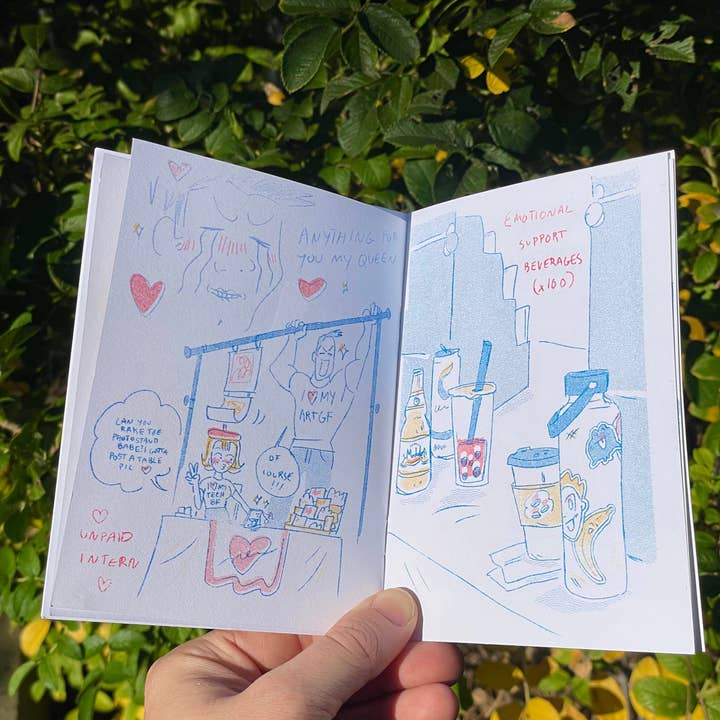 ANYTHING FOR
YOU MY QUEEN
I ♥ MY
ART GF
CAN YOU
RAISE THE
PHOTOSTAND
BABE? I GOTTA
POST A TABLE
PIC ♥
OF
COURSE
!!!
I ♥ MY
TECH
BF
UNPAID
INTERN
EMOTIONAL
SUPPORT
BEVERAGES
(x100)